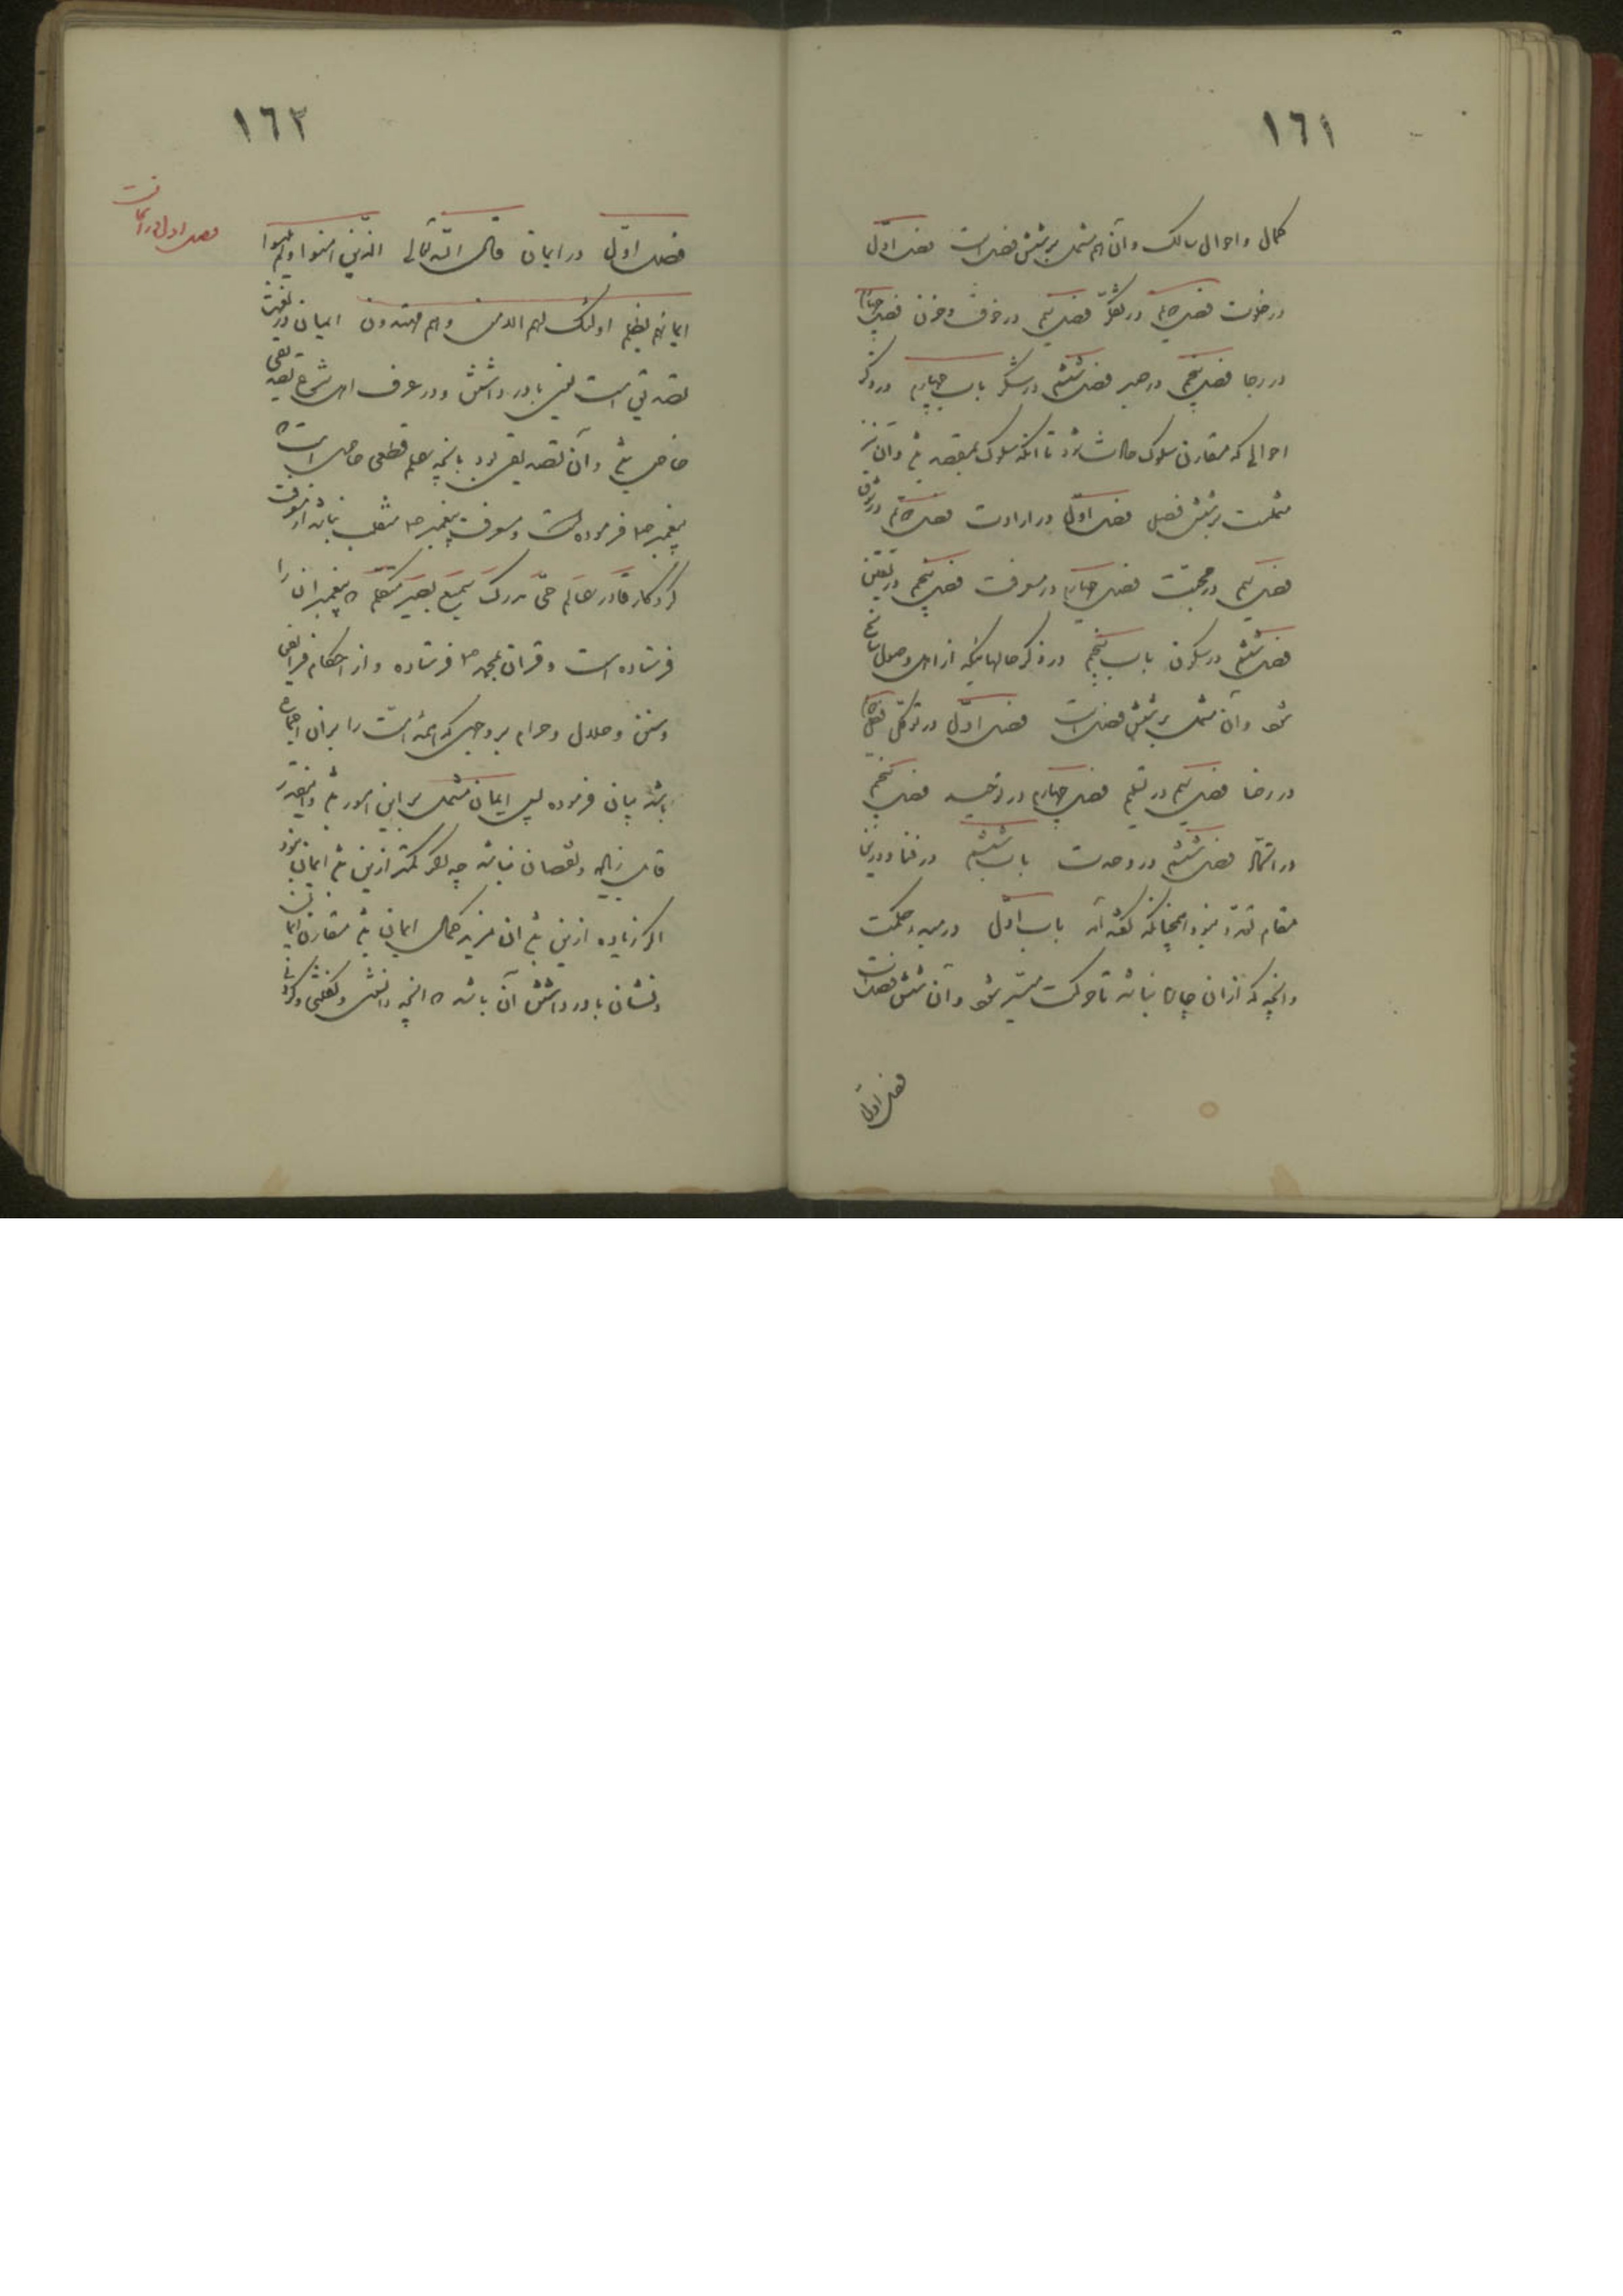 ١٦١
کمال و احوال سالک و آن هم مشتمل بر شش فصل است فصل اوّل
در خلوت فصل دوم در تفکر فصل سیم در خوف و حزن فصل چهارم
در رجا فصل پنجم در صبر فصل ششم در شکر باب چهارم در ذکر
احوالی که مقارن سلوک حادث شود تا آنکه سلوک بمقصد باشد و آن نیز
مشتملست بر شش فصل فصل اوّل در ارادت فصل دوم در شوق
فصل سیم در محبّت فصل چهارم در معرفت فصل پنجم در یقین
فصل ششم در سکون باب پنجم در ذکر حالهائیکه از اهل وصول سانح
شود و آن مشتمل بر شش فصل است فصل اوّل در توکل فصل دوم
در رضا فصل سیم در تسلیم فصل چهارم در توحید فصل پنجم
در اتحاد فصل ششم در وحدت باب ششم در فنا و درین
مقام تعدد نبود همچنانکه گفته‌اند باب اوّل در مبدء حرکت
و آنچه که از آن چاره نباشد تا حرکت میسّر شود و آن شش فصل است
فصل اول
١٦٢
فصل اوّل در ایمان قال اللّه تعالی الّذین امنوا و لم یلبسوا
ایمانهم بظلم اولئک لهم الامن و هم مهتدون ایمان در لغت
تصدیق است یعنی باور داشتن و در عرف اهل شرع تصدیقی
خاص باشد و آن تصدیق بود بآنچه علم قطعی حاصل است که
پیغمبر ص فرموده است و معرفت پیغمبر ص منفک نباشد از معرفت
کردکار قادر عالم حیّ مدرک سمیع بصیر متکلم که پیغمبران را
فرستاده است و قران بمحمد ص فرستاده و از احکام فرایض
و سنن و حلال و حرام بر وجهی که همه امّت را بران اجماع
باشد بیان فرموده پس ایمان مشتمل بر این امور باشد و اینقدر
قابل زیاده و نقصان نباشد چه اگر کمتر ازین باشد ایمان نبود
اگر زیاده ازین باشد آن مزید کمال ایمان باشد مقارن ایمان
و نشان باور داشتن آن باشد که آنچه دانستنی و گفتنی و کردنی
فصل اول در ایمانست